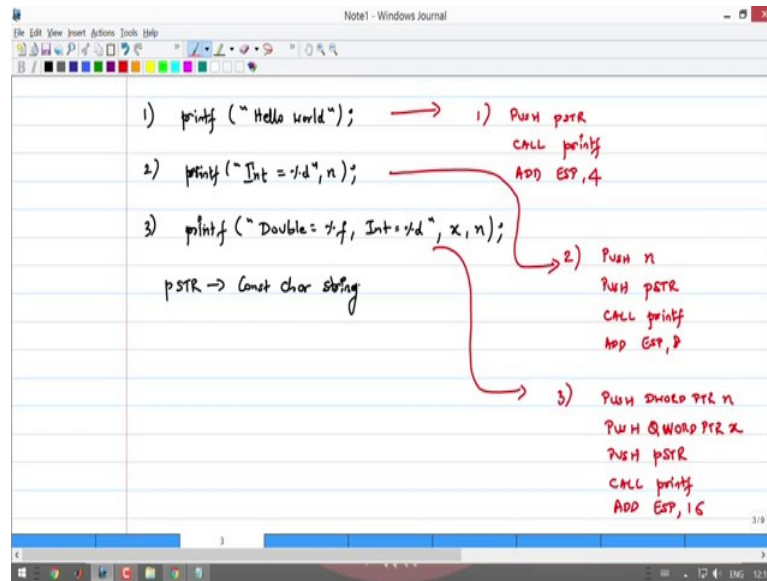 Note1 - Windows Journal
File Edit View Insert Actions Tools Help
B I
1) printf ("Hello world");
2) printf ("Int = %d", n);
3) printf ("Double = %f, Int = %d", x, n);
pSTR → Const char string
1) PUSH pSTR
CALL printf
ADD ESP, 4
2) PUSH n
PUSH pSTR
CALL printf
ADD ESP, 8
3) PUSH DWORD PTR n
PUSH QWORD PTR x
PUSH pSTR
CALL printf
ADD ESP, 16
3/9
3
ENG